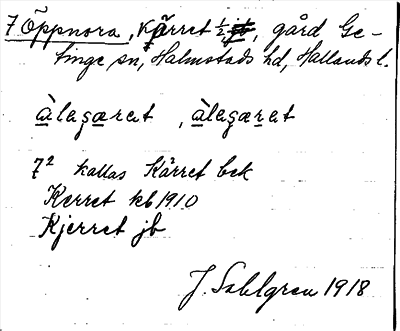 7 Öppnora, Kärret ½, gård Ge-
tinge sn, Halmstads hd, Hallands l.
àlagærat, àlagærat
7² kallas Kärret bek
Kerret kb 1910
Kjerret jb
J. Sahlgren 1918